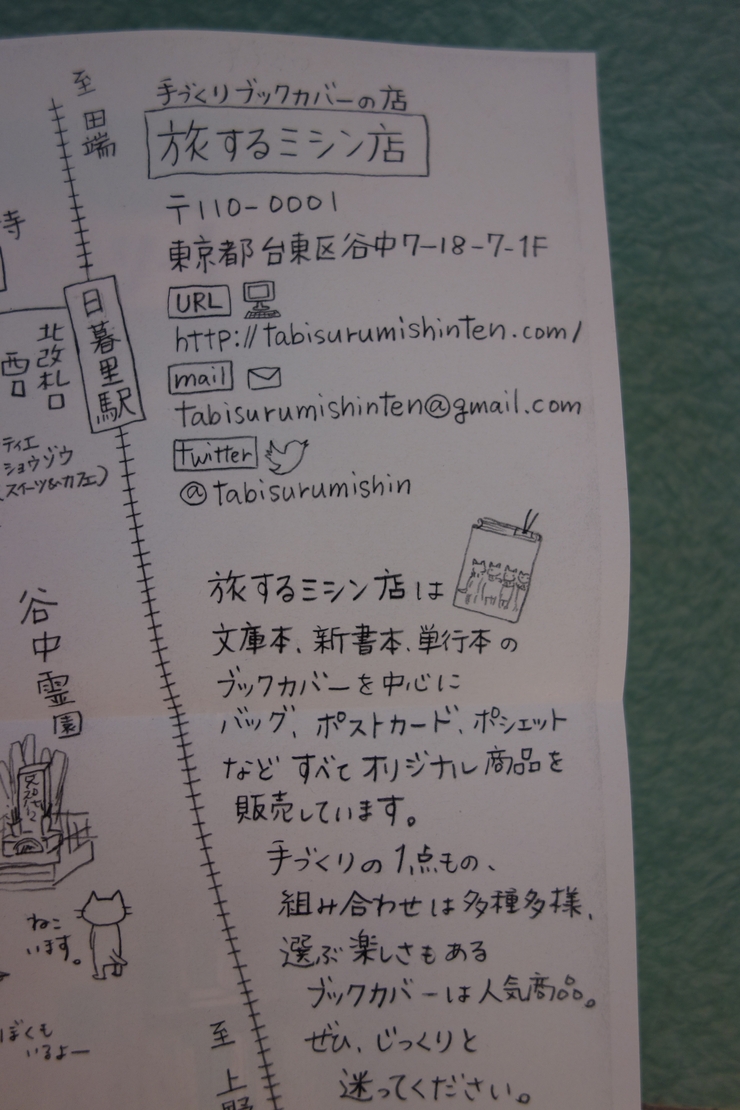 手づくりブックカバーの店
旅するミシン店
〒110-0001
東京都台東区谷中7-18-7-1F
URL
http://tabisurumishinten.com/
mail
tabisurumishinten@gmail.com
twitter
@tabisurumishin
旅するミシン店は
文庫本、新書本、単行本の
ブックカバーを中心に
バッグ、ポストカード、ポシェット
など すべて オリジナル商品を
販売しています。
手づくりの1点もの、
組み合わせは多種多様、
選ぶ楽しさもある
ブックカバーは人気商品。
ぜひ、じっくりと
迷ってください。
至 田端
寺
日暮里駅
北改札口
西口
ティエ
ショウゾウ
スイーツ&カフェ)
谷中霊園
ねこ
います。
ぼくも
いるよー
至 上野